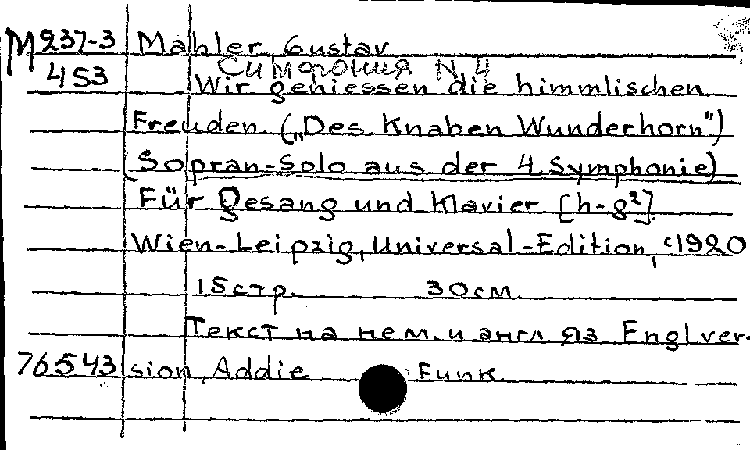 М 237-3 Mahler, Gustav
Симфония N 4
453 Wir geniessen die himmlischen
Freuden. („Des Knaben Wunderhorn")
(Sopran-Solo aus der 4. Symphonie)
Für Gesang und Klavier [h-g²].
Wien-Leipzig, Universal-Edition, c1920
15 стр. 30 см.
Текст на нем. и англ яз Engl ver-
76543 sion, Addie Funk